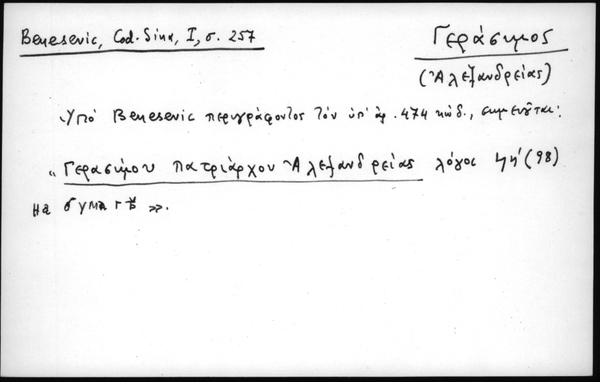 Benesevic, Cod. Sinn, I, σ. 257
Γεράσιμος
(Ἀλεξανδρείας)
Ὑπὸ Benesevic περιγράφοντος τὸν ὑπ' ἀρ. 474 κώδ., σημειοῦται:
"Γερασίμου πατριάρχου Ἀλεξανδρείας λόγοι ϟη' (98)
на бумагѣ».